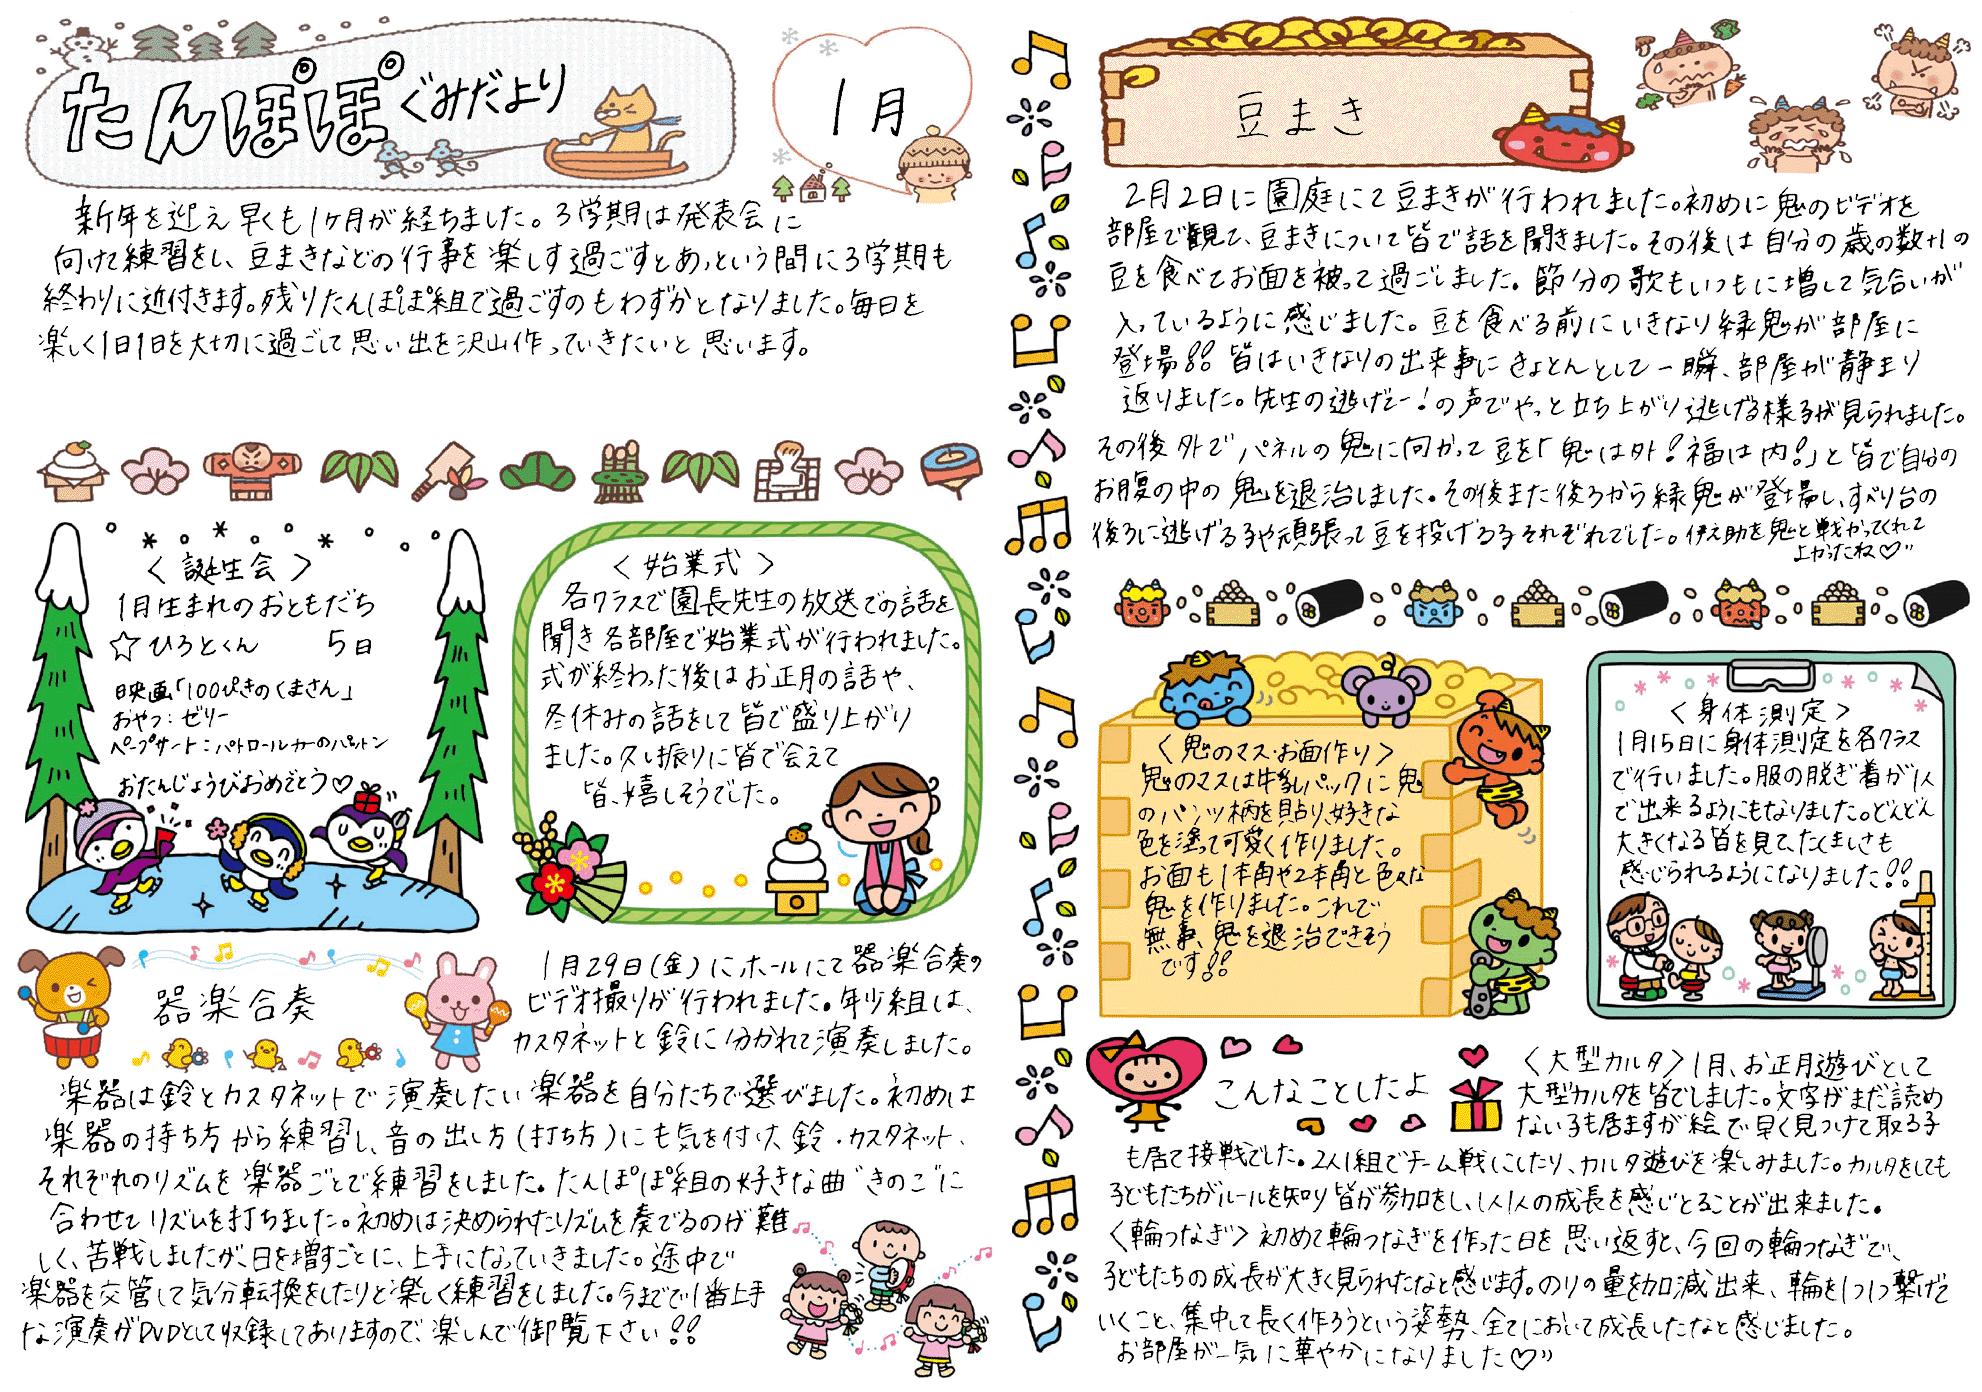 たんぽぽぐみだより
1月
新年を迎え早くも1ヶ月が経ちました。3学期は発表会に
向けて練習をし、豆まきなどの行事を楽しす過ごすとあっという間に3学期も
終わりに近付きます。残りたんぽぽ組で過ごすのもわずかとなりました。毎日を
楽しく1日1日を大切に過ごして思い出を沢山作っていきたいと思います。
<誕生会>
1月生まれのおともだち
☆ひろとくん 5日
映画「100ぴきのくまさん」
おやつ:ゼリー
ペープサート:パトロールカーのパトン
おたんじょうびおめでとう♡
<始業式>
各クラスで園長先生の放送での話を
聞き各部屋で始業式が行われました。
式が終わった後はお正月の話や、
冬休みの話をして皆で盛り上がり
ました。久し振りに皆で会えて
皆、嬉しそうでした。
器楽合奏
1月29日(金)にホールにて器楽合奏の
ビデオ撮りが行われました。年少組は、
カスタネットと鈴に分かれて演奏しました。
楽器は鈴とカスタネットで演奏したい楽器を自分たちで選びました。初めは
楽器の持ち方から練習し、音の出し方(打ち方)にも気を付け、鈴・カスタネット、
それぞれのリズムを楽器ごとで練習をしました。たんぽぽ組の好きな曲"きのこ"に
合わせてリズムを打ちました。初めは決められたリズムを奏でるのが難
しく、苦戦しましたが、日を増すごとに、上手になっていきました。途中で
楽器を交管して気分転換をしたりと楽しく練習をしました。今までで1番上手
な演奏がDVDとして収録してありますので、楽しんで御覧下さい!!
豆まき
2月2日に園庭にて豆まきが行われました。初めに鬼のビデオを
部屋で観て、豆まきについて皆で話を聞きました。その後は自分の歳の数+1の
豆を食べてお面を被って過ごしました。節分の歌もいつもに増して気合いが
入っているように感じました。豆を食べる前にいきなり緑鬼が部屋に
登場!!皆はいきなりの出来事にきょとんとして一瞬、部屋が静まり
返りました。先生の逃げてー!の声でやっと立ち上がり逃げる様子が見られました。
その後外でパネルの鬼に向かって豆を「鬼は外!福は内!」と皆で自分の
お腹の中の鬼を退治しました。その後また後ろから緑鬼が登場し、すべり台の
後ろに逃げる子や頑張って豆を投げる子それぞれでした。伊之助を鬼と戦かってくれて
よかったね♡
<鬼のマス・お面作り>
鬼のマスは牛乳パックに鬼
のパンツ柄を貼り、好きな
色を塗って可愛く作りました。
お面も1本角や2本角と色々な
鬼を作りました。これで
無事、鬼を退治できそう
です!!
<身体測定>
1月15日に身体測定を各クラス
で行いました。服の脱ぎ着が1人
で出来るようにもなりました。どんどん
大きくなる皆を見て、たくましさも
感じられるようになりました!!
こんなことしたよ
<大型カルタ>1月、お正月遊びとして
大型カルタを皆でしました。文字がまだ読め
ない子も居ますが絵で早く見つけて取る子
も居て接戦でした。2人1組でチーム戦にしたり、カルタ遊びを楽しみました。カルタをしても
子どもたちがルールを知り皆が参加をし、1人1人の成長を感じとることが出来ました。
<輪つなぎ>初めて輪つなぎを作った日を思い返すと、今回の輪つなぎで、
子どもたちの成長が大きく見られたなと感じます。のりの量を加減出来、輪を1つ1つ繋げて
いくこと、集中して長く作ろうという姿勢、全てにおいて成長したなと感じました。
お部屋が一気に華やかになりました♡